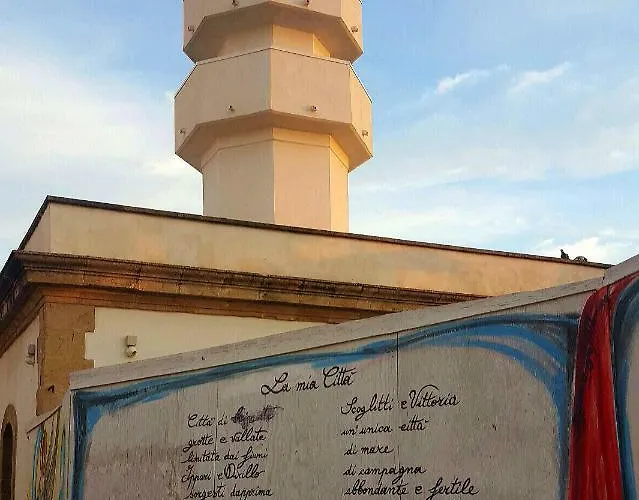 La mia Città
Città di
grotte e vallate
limitate dai fiumi
Ippari e Dirillo
sorgesti dapprima
Scoglitti e Vittoria
un'unica città
di mare
di campagna
abbondante e fertile